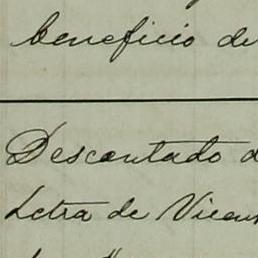 beneficio de
Descontado d
Letra de Vicen